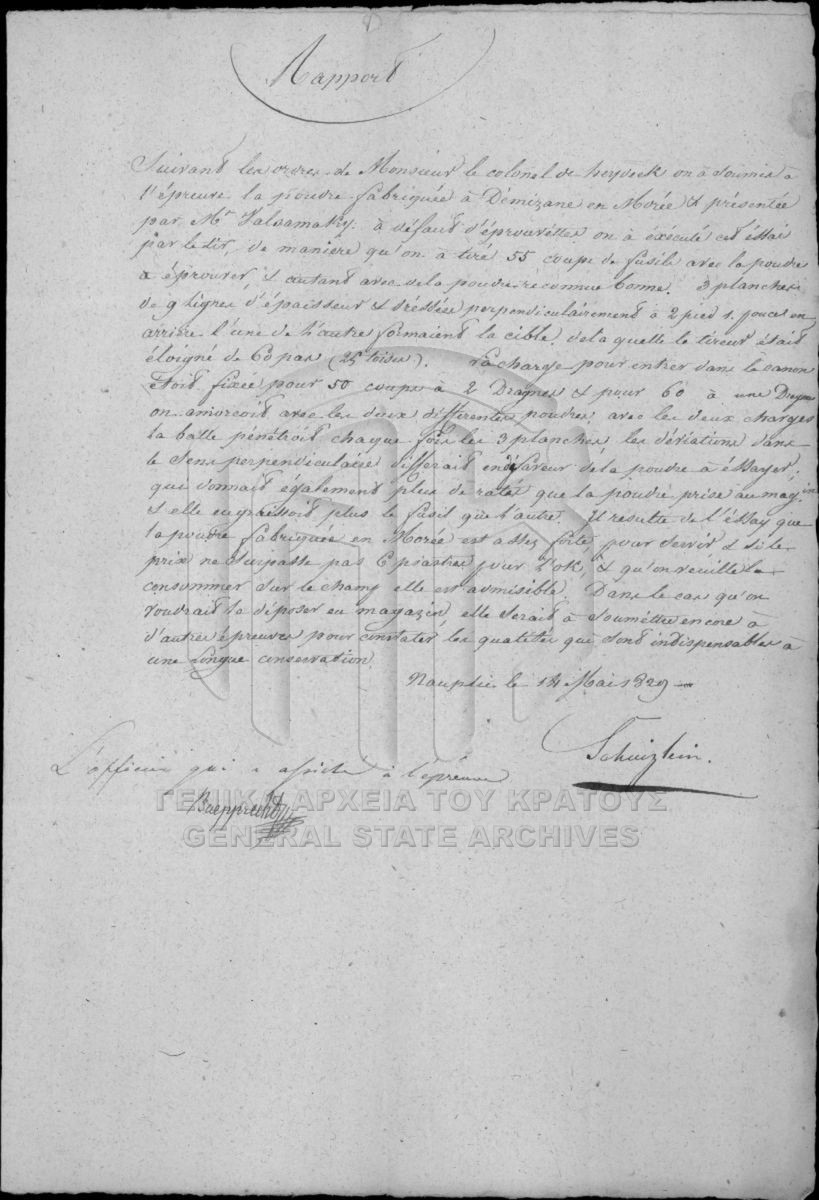 Rapport
Suivant les ordres de Monsieur le colonel de heydeck on à soumis à
l'épreuve la poudre fabriquée à Démizane en Morée & présentée
par Mr Valsamaky. à défaut d'éprouvettes on à éxécuté cet éssai
par le tir, de maniere qu'on à tiré 55 coups de fusils avec la poudre
a éprouver, & autant avec de la poudre reconnue bonne. 3 planches
de 9 lignes d'épaisseur & dréssées perpendiculairement à 2 pied 1. pouces en
arriere l'une de l'autre formaient la cible, de la quelle le tireur était
éloigné de 60 pas (25 toises). La charge pour entrer dans le canon
étoit fixée pour 50 coups à 2 Dragmes & pour 60 à une Dragme
on amorcoit avec les deux differentes poudres, avec les deux charges
la balle pénétroit chaque fois les 3 planches les déviations dans
le sens perpendiculaire differait en défaveur de la poudre à éssayer,
qui donnait également plus de ratés que la poudre prise au magin
& elle encrassoit plus le fusil que l'autre. Il resulte de l'éssay que
la poudre fabriquée en Morée est assez forte, pour servir & si le
prix ne surpasse pas 6 piastres pour l'ok, & qu'on veuille la
consommer sur le champ elle est admisible. Dans le cas qu'on
voudrait la déposer en magazin, elle serait à soumettre encore à
d'autres épreuves pour constater les qualités qui sont indispensables à
une longue conservation.
Nauplie le 14 Mai 1829
Schnizlein.
L'officier qui a assisté à l'épreuve
ΓΕΝΙΚΑ ΑΡΧΕΙΑ ΤΟΥ ΚΡΑΤΟΥΣ
GENERAL STATE ARCHIVES